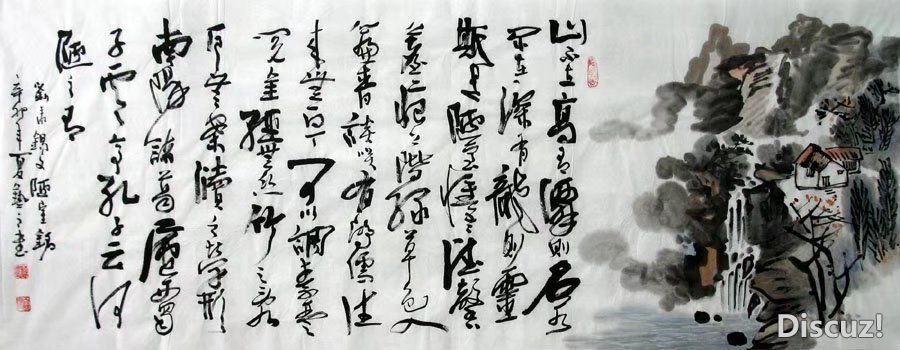 山不在高有仙则名水
不在深有龍则靈
斯是陋室惟吾德馨
苔痕上階綠草色入
簾青談笑有鴻儒往
来無白丁可以調素琴
閲金經無丝竹之乱
耳無案牘之劳形
南陽諸葛廬西蜀
子雲亭孔子云何
陋之有
劉禹錫文陋室銘
辛卯年夏
Discuz!